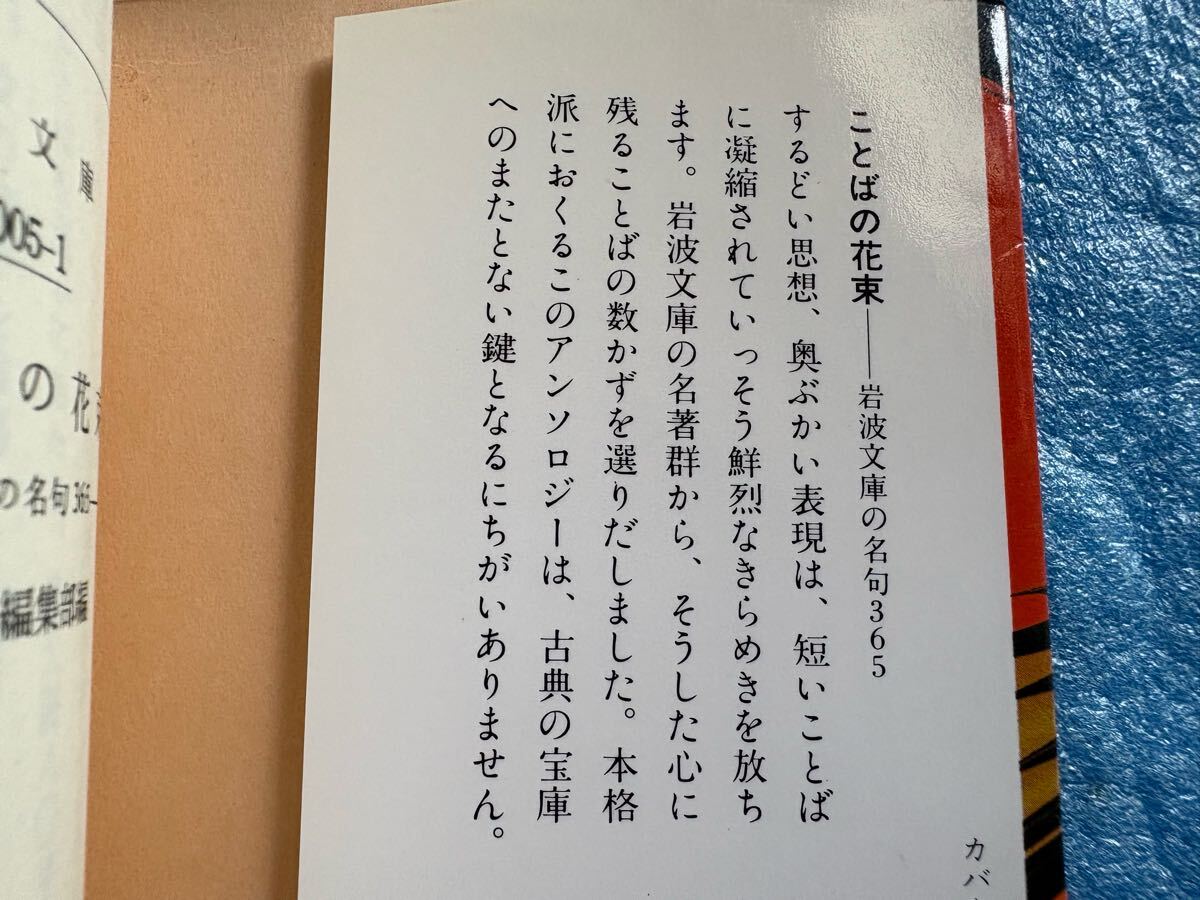 ことばの花束――岩波文庫の名句365
するどい思想、奥ぶかい表現は、短いことば
に凝縮されていっそう鮮烈なきらめきを放ち
ます。岩波文庫の名著群から、そうした心に
残ることばの数かずを選りだしました。本格
派におくるこのアンソロジーは、古典の宝庫
へのまたとない鍵となるにちがいありません。
カバ
文庫
005-1
の花
の名句365―
編集部編